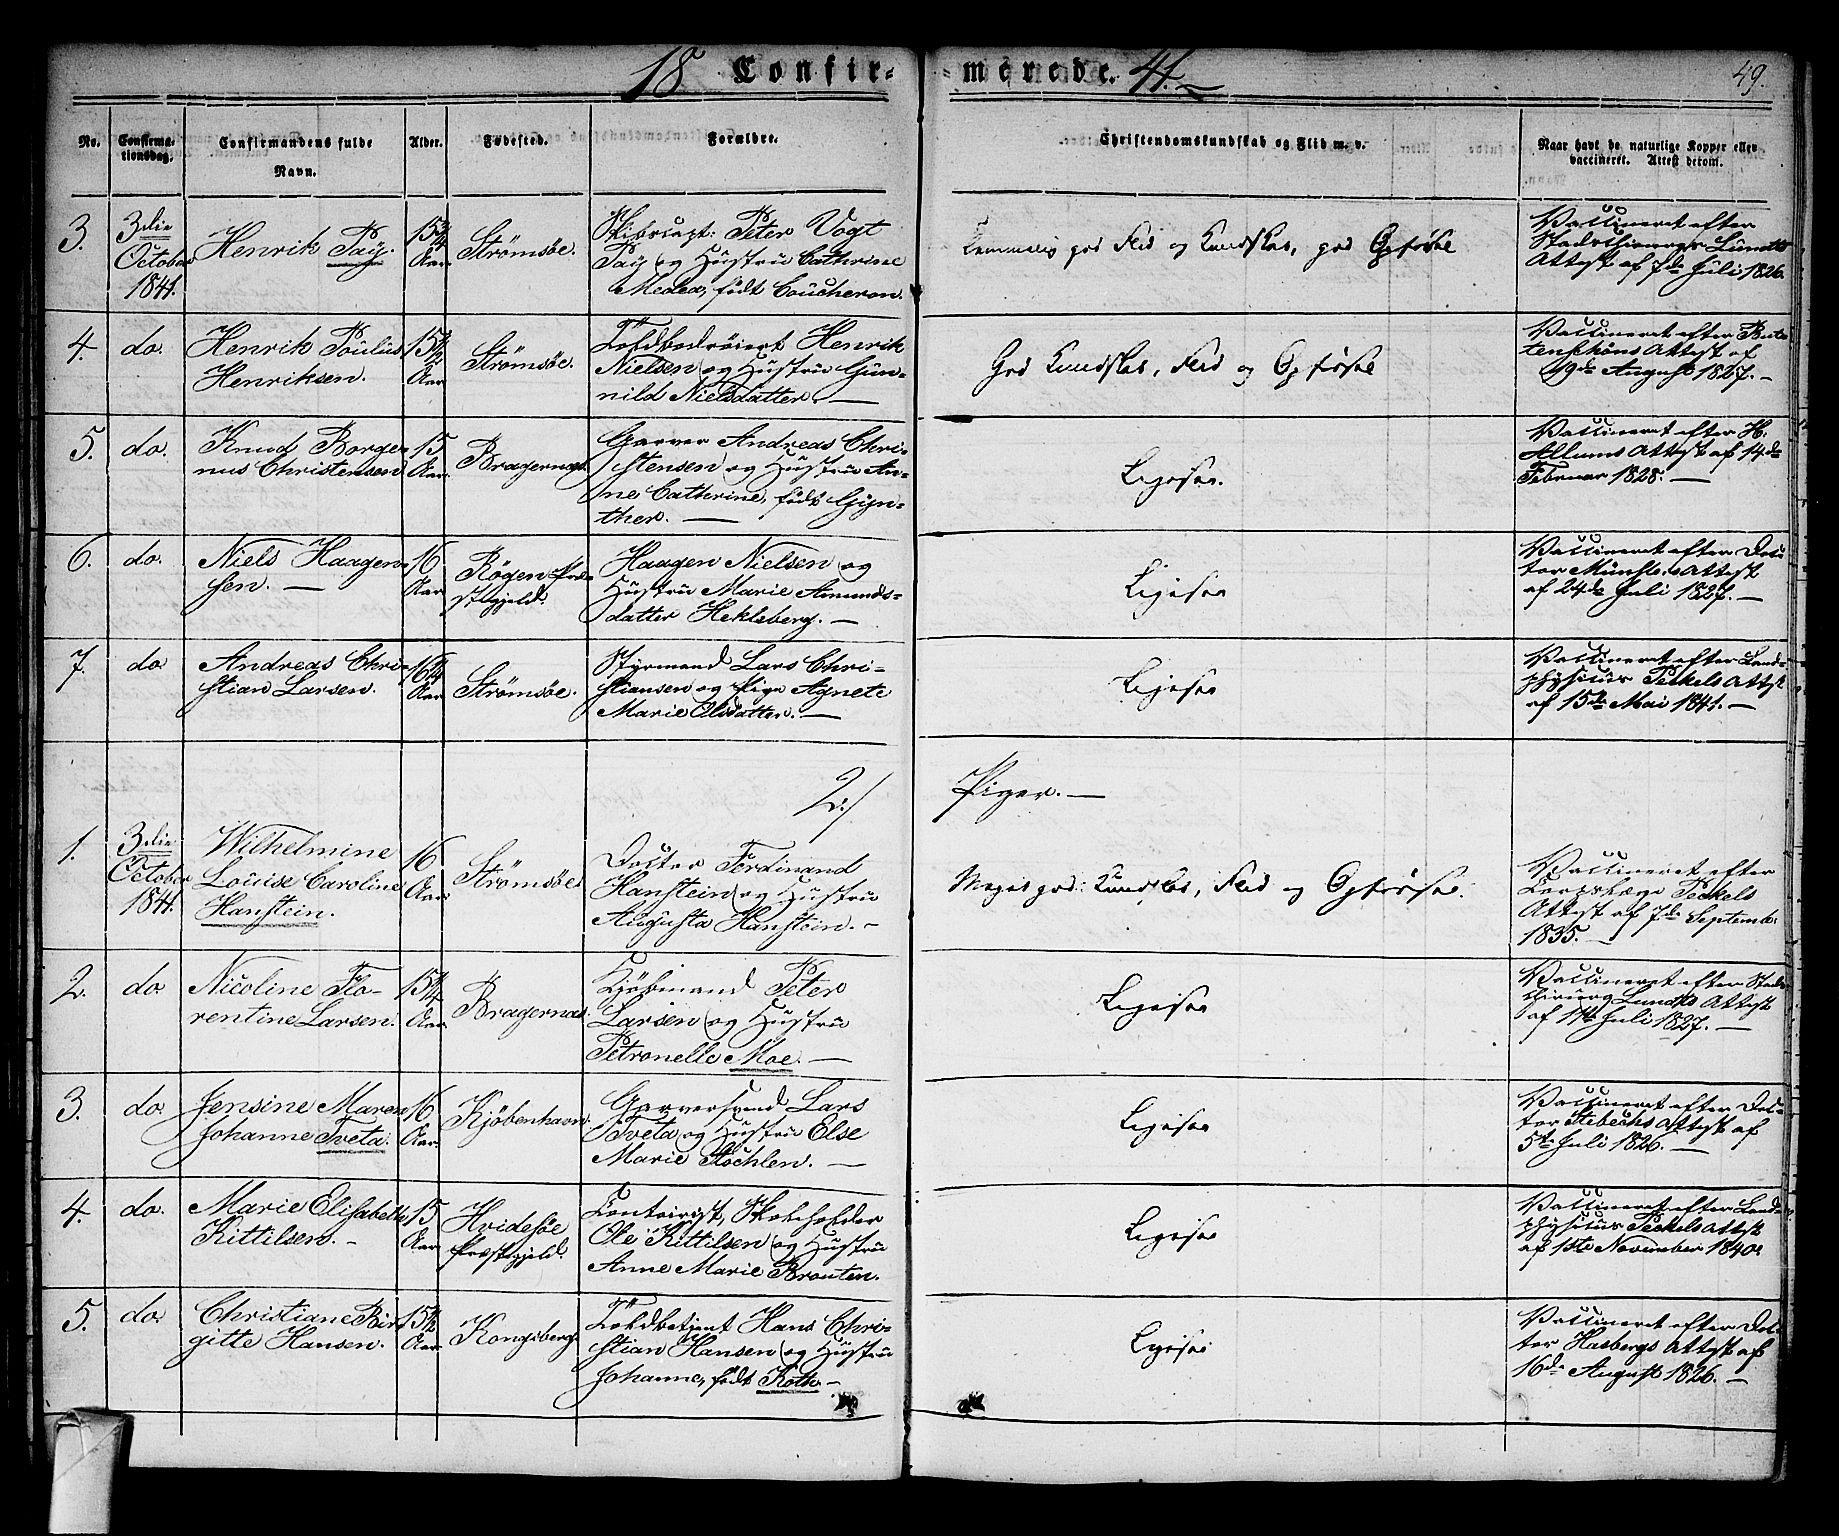 18 Confir=
=merede. 41.
49.
No.
Confirma-
tionsdag.
Confirmandens fulde
Navn.
Alder.
Fødested.
Forældre.
Christendomskundskab og Flid m. v.
Naar havt de naturlige Kopper eller
vaccineret. Attest derom.
3.
3die
October
1841.
Henrik Pay.
15 3/4
Aar.
Strømsöe.
Skibscapt: Peter Vogt
Pay og Hustru Cathrine
Medea, født Coucheron.
god Flid og Kundskab, god Opførsel
Vaccineret efter
Stadschirurgus Lundts
Attest af 7de Juli 1826.
4.
do.
Henrik Poulus
Henriksen.
15 1/2
Aar
Strømsöe.
Toldbedrøiert Henrik
Nielsen og Hustru Gun-
nild Nielsdatter. —
God Kundskab, Flid og Opførsel
Vaccineret efter
Attest af
19de August 1827. —
5.
do.
Knud Borge-
nus Christensen
15
Aar.
Bragernæs.
Garver Andreas Chri-
stensen og Hustru An-
ne Cathrine, født Gyn-
ther. —
Ligesaa.
Vaccineret efter H.
Allums Attest af 14de
Februar 1828. —
6.
do.
Niels Haagen-
sen. —
16
Aar
Røgen Præ-
stegjeld.
Haagen Nielsen og
Hustru Marie Amunds-
datter Hekleberg. —
Ligesaa
Vaccineret efter Doc-
tor Münsters Attest
af 24de Juli 1827. —
7.
do.
Andreas Chri-
stian Larsen.
16 1/4
Aar
Strømsöe.
Styrmand Lars Chri-
stiansen og Pige Agnete
Marie Olsdatter. —
Ligesaa
Vaccineret efter Land-
physicus Peckels Attest
af 15de Mai 1841. —
2./
Piger. —
1.
3die
October
1841.
Wilhelmine
Louise Caroline
Hanstein.
16
Aar.
Strømsöe
Doctor Ferdinand
Hanstein og Hustru
Augusta Hanstein. -
Meget god: Kundskab, Flid og Opførsel.
Vaccineret efter
Corpslæge Peckels
Attest af 7de Septembr
1835. —
2.
do.
Nicoline Flo-
rentine Larsen.
15 1/4
Aar.
Bragernæs.
Kjøbmand Peter
Larsen og Hustru
Petronelle Moe. —
Ligesaa
Vaccineret efter Stads-
chirurg Lundts Attest
af Juli 1827. —
3.
do.
Jensine Maren
Johanne Tveta.
16
Aar.
Kjöbenhavn.
Garversvend Lars
Tveta og Hustru Else
Marie Stochlen. —
Ligesaa
Vaccineret efter Doc-
tor Attest af
5te Juli 1826. —
4.
do.
Marie Elisabeth
Kittilsen. -
15
Aar
Hvidesöe
Præstegjeld.
Contoirist, Skoleholder
Ole Kittilsen og Hustru
Anne Marie Brouten.
Ligesaa
Vaccineret efter Land-
physicus Peckels Attest
af 1ste November 1840.
5.
do.
Christiane Bir-
gitte Hansen.
15 1/2
Aar.
Kongsberg
Toldbetjent Hans Chri-
stian Hansen og Hustru
Johanne, født Koth. -
Ligesaa
Vaccineret efter Doc-
tor Hasbergs Attest af
16de August 1826. —